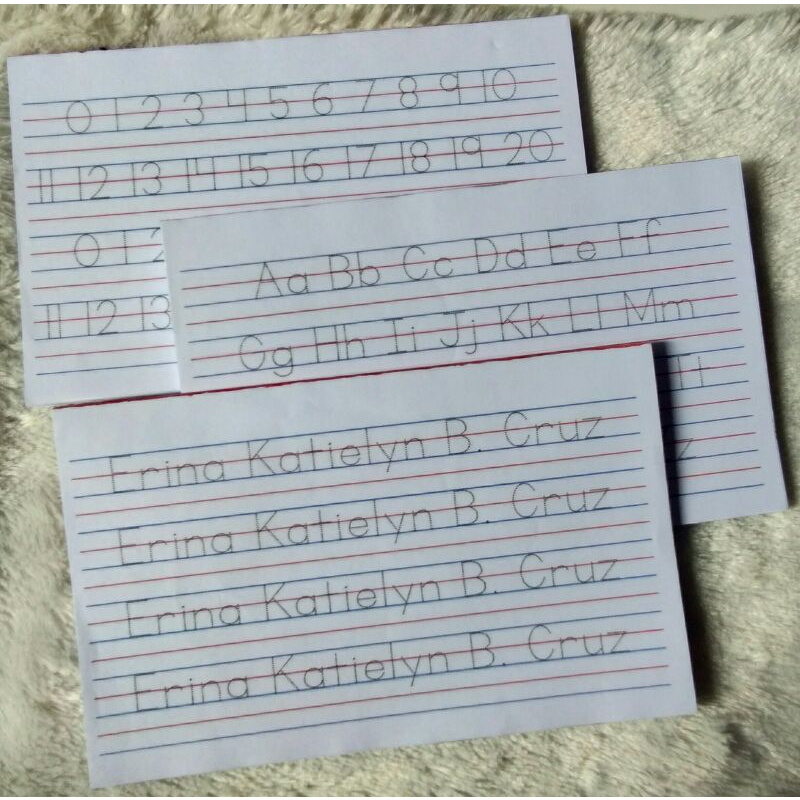 0 1 2 3 4 5 6 7 8 9 10
11 12 13 14 15 16 17 18 19 20
0 1 2
11 12 13
Aa Bb Cc Dd Ee Ff
Gg Hh Ii Jj Kk Ll Mm
Tt
z
Erina Katielyn B. Cruz
Erina Katielyn B. Cruz
Erina Katielyn B. Cruz
Erina Katielyn B. Cruz